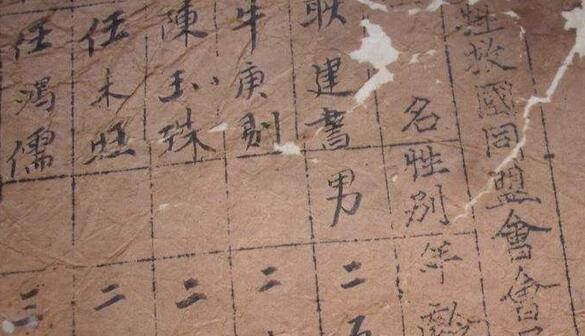 牲救國同盟會會
名性別年齡
耿建書男二五
牛庚則二
陳玉珠二
任木旺二
任鴻儒三